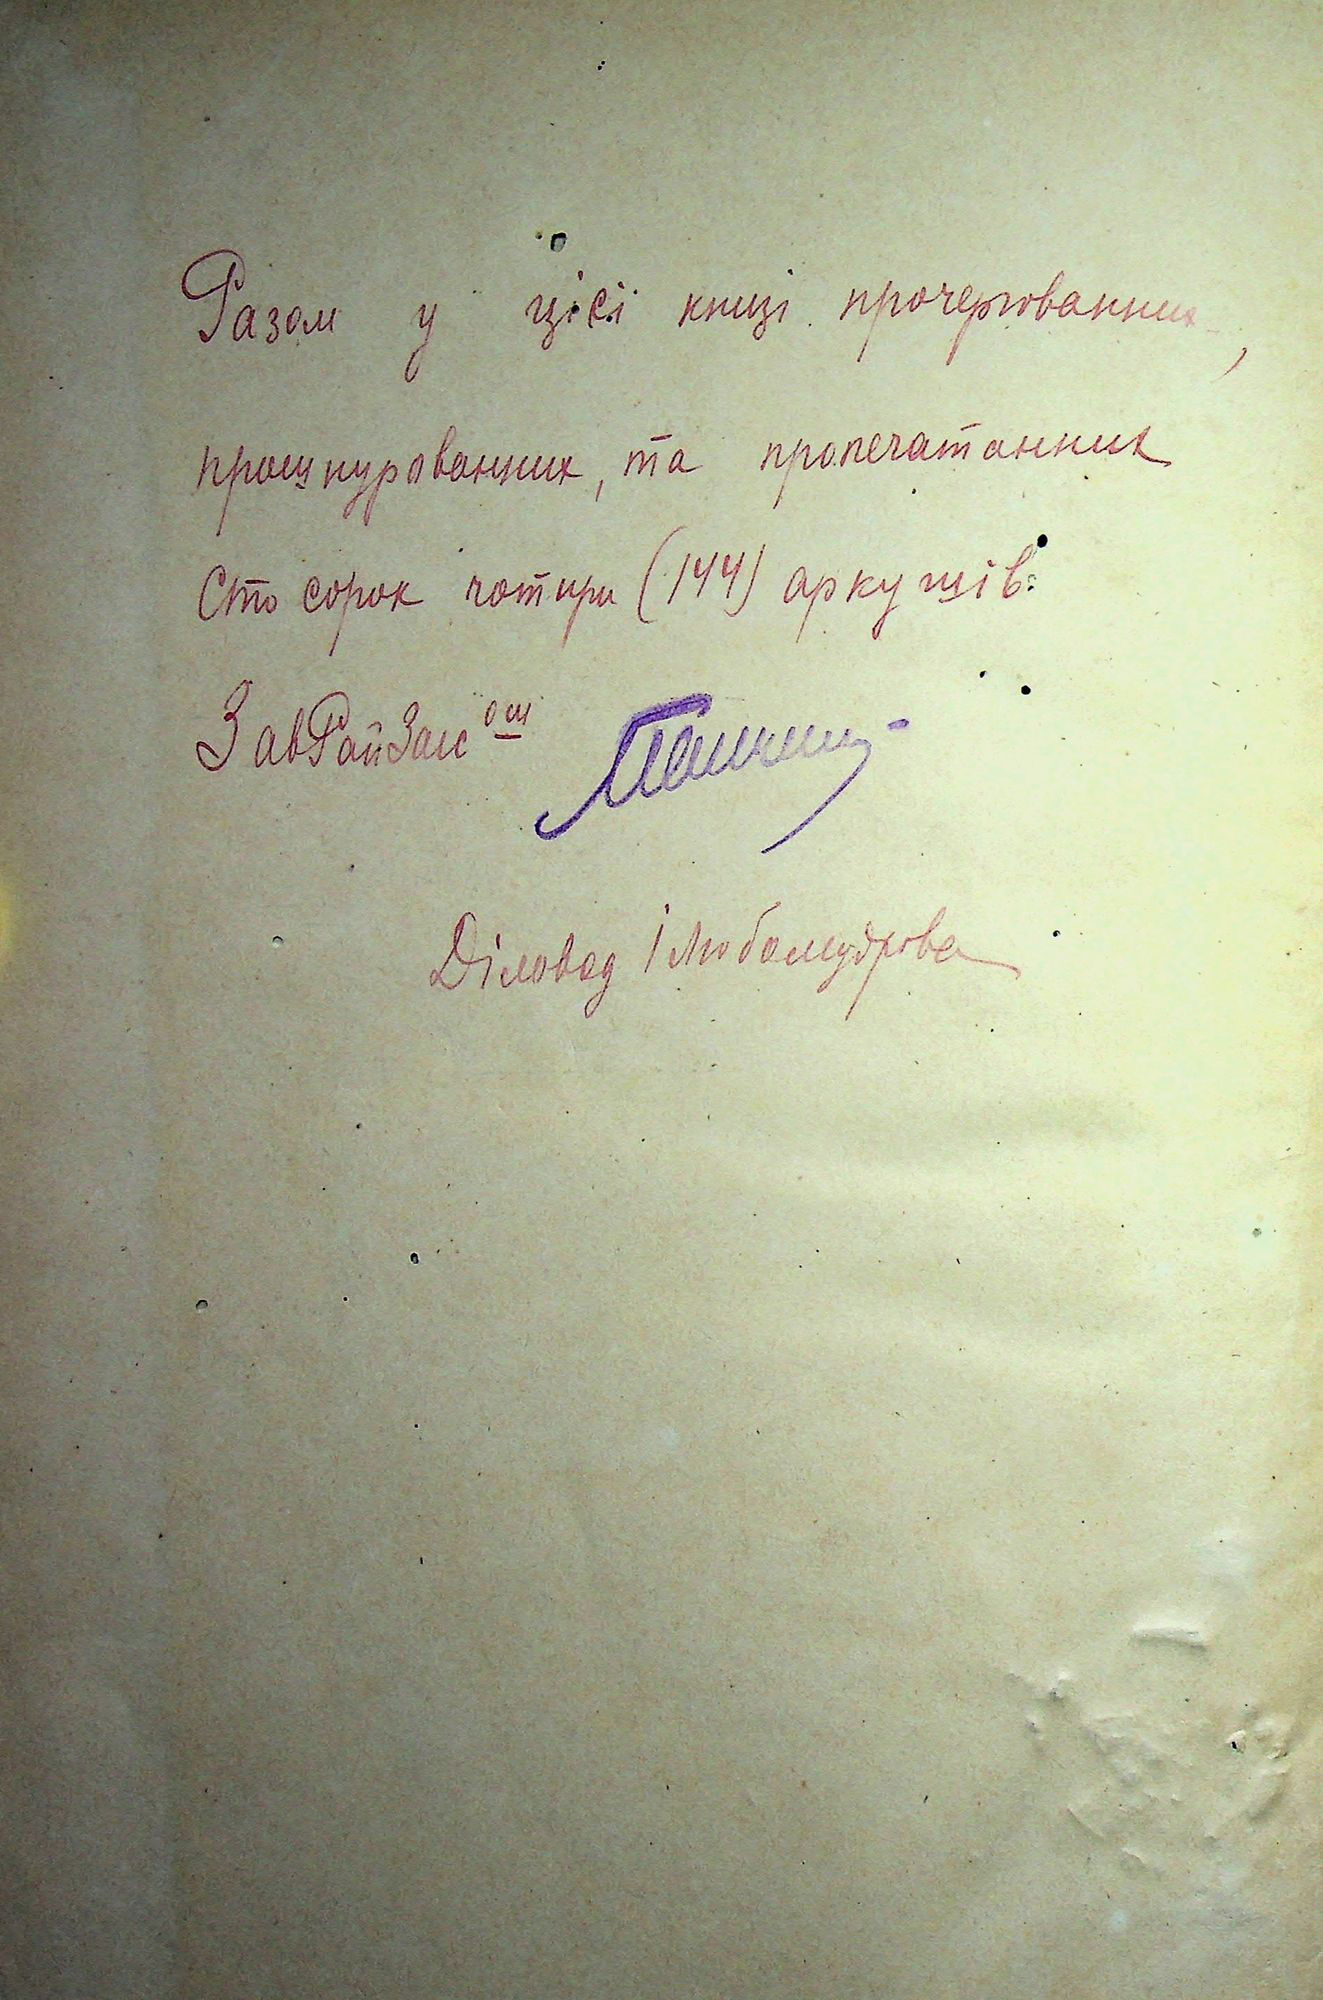 Разом у цієі книзі прочергованних,
прошнурованних, та пропечатанних
Сто сорок чотири (144) аркушів.
ЗавРайЗаг ом
Діловод Любомудрова